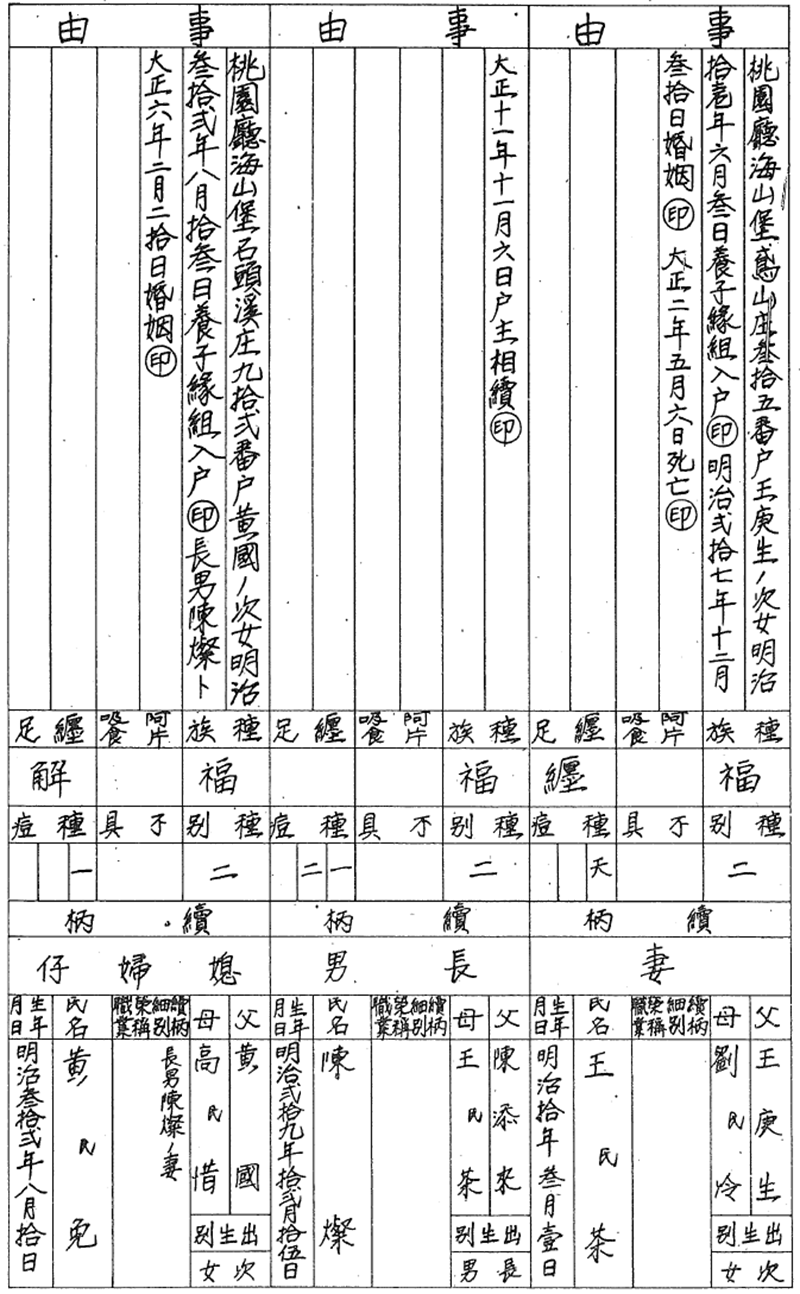 事由
桃園廳海山堡鳶山庄叁拾五番户王庚生ノ次女明治
拾壱年六月叁日養子緣組入户㊞明治弍拾七年十二月
叁拾日婚姻㊞大正二年五月六日死亡㊞
種族
福
阿片吸食
纏足
纏
種別
二
不具
種痘
天
續柄
妻
父
王庚生
母
劉氏冷
出生別
次女
續柄細別榮稱職業
氏名
王氏茶
生年月日
明治拾年叁月壹日
事由
大正十一年十一月六日户主相續㊞
種族
福
阿片吸食
纏足
種別
二
不具
種痘
一
二
續柄
長男
父
陳添來
母
王民茶
出生別
長男
續柄細別榮稱職業
氏名
陳燦
生年月日
明治弍拾九年拾弍月拾伍日
事由
桃園廳海山堡石頭溪庄九拾弍番户黄國ノ次女明治
叁拾弍年八月拾叁日養子緣組入户㊞長男陳燦ト
大正六年二月二拾日婚姻㊞
種族
福
阿片吸食
纏足
解
種別
二
不具
種痘
一
續柄
媳婦仔
父
黄國
母
高民惜
出生別
次女
續柄細別榮稱職業
長男陳燦ノ妻
氏名
黄民兔
生年月日
明治叁拾弍年八月拾日